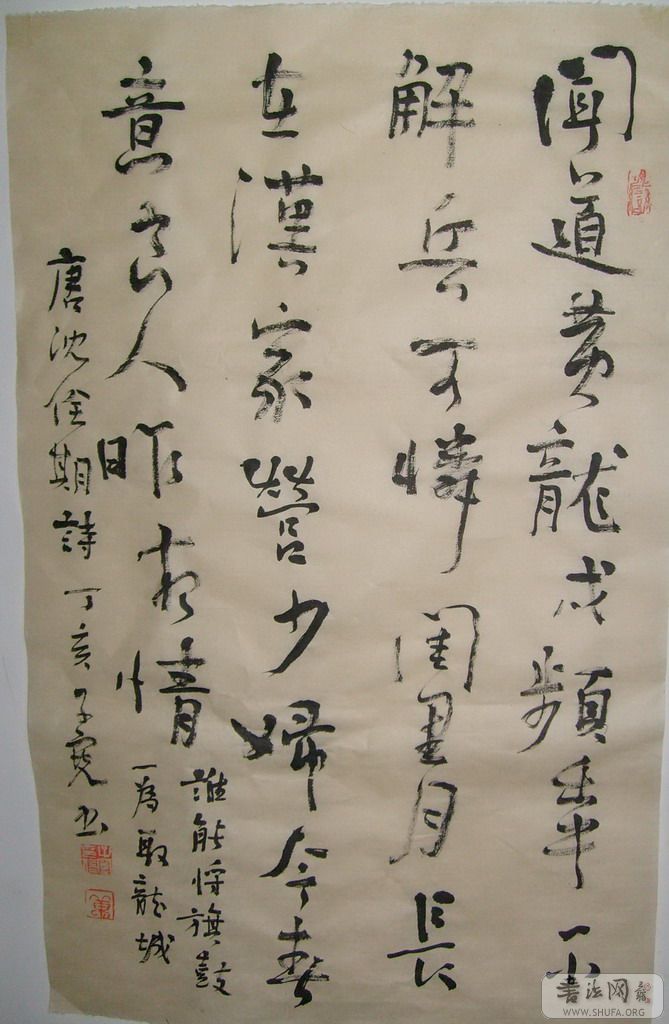 聞道黄龍戍頻年不
解兵可憐閨里月長
在漢家營少婦今春
意良人昨夜情
誰能將旗鼓
一為取龍城
唐沈佺期詩丁亥子書
書法网
WWW.SHUFA.ORG